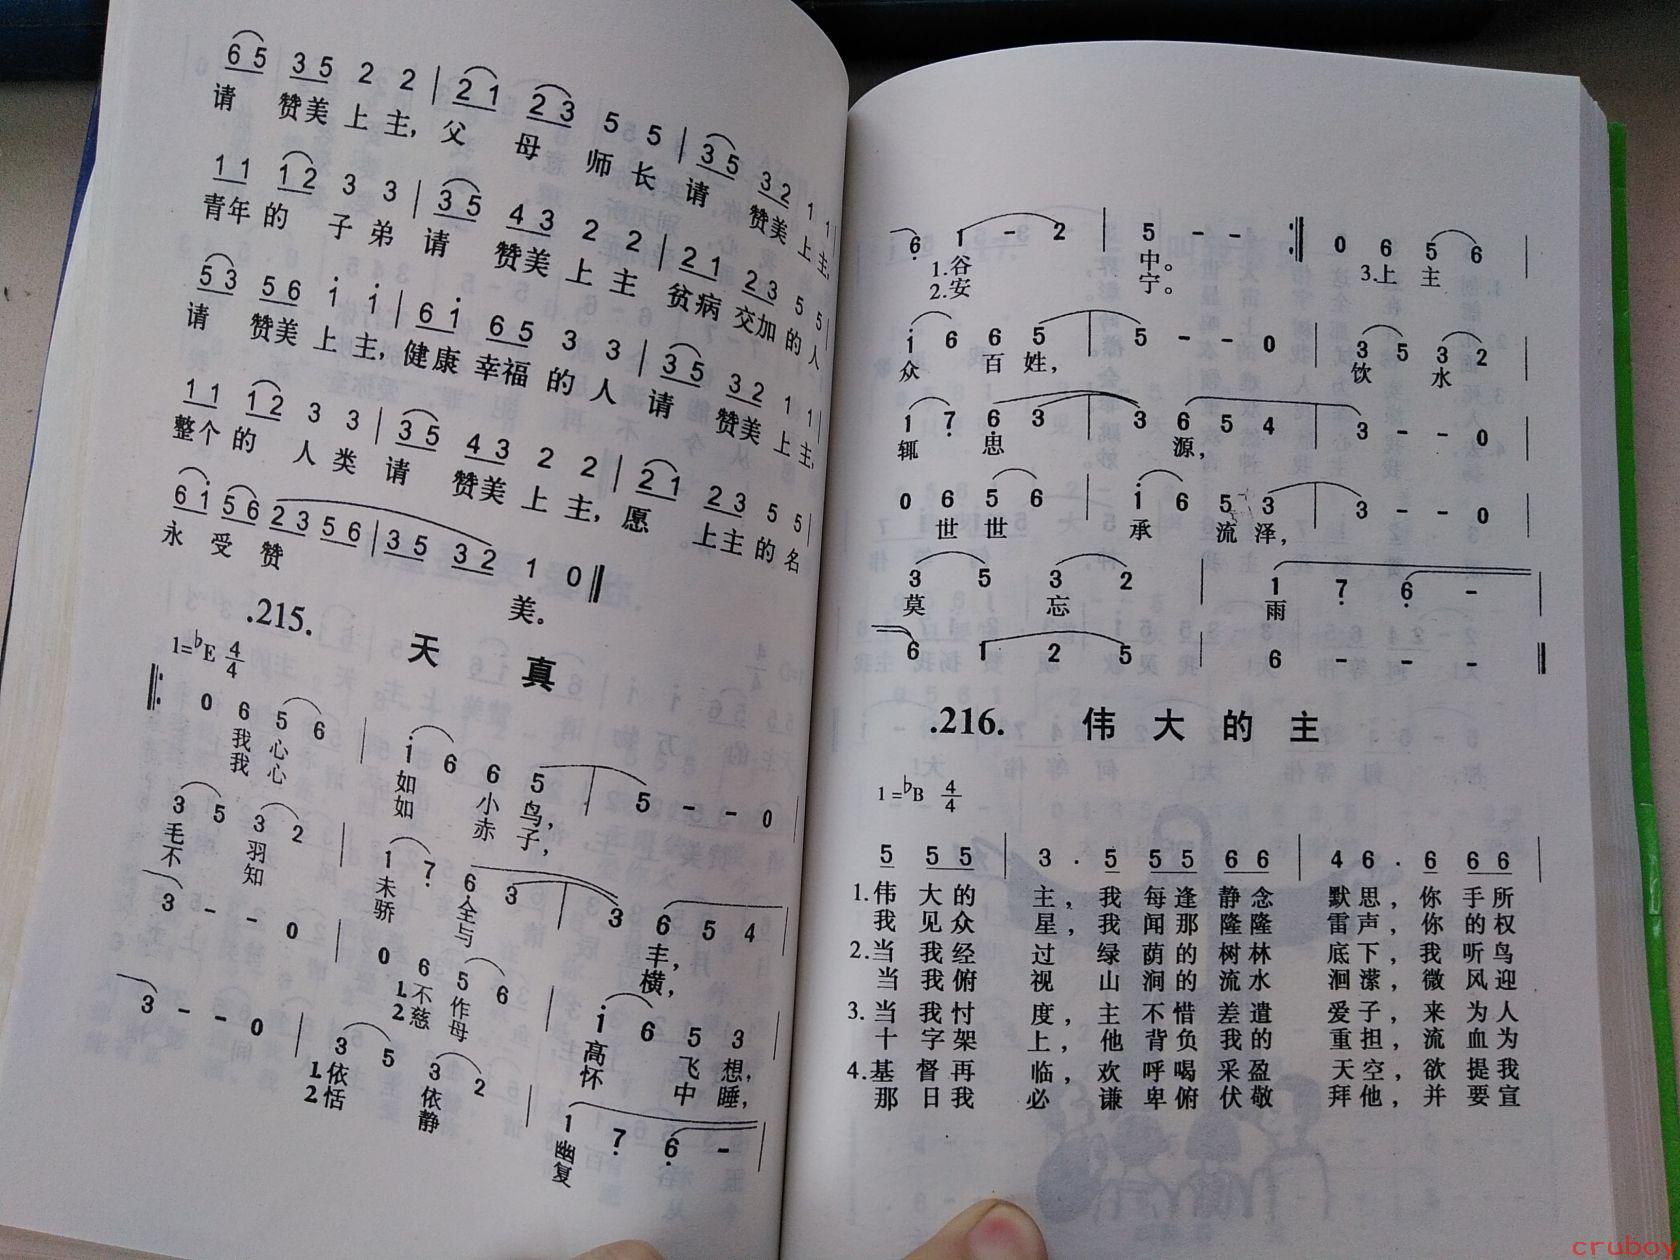 6 5 3 5 2 2 | 2 1 2 3 5 5 | 3 5 3 2 1 1 |
请 赞美 上 主, 父 母 师 长 请 赞美 上 主,
1 1 1 2 3 3 | 3 5 4 3 2 2 | 2 1 2 3 5 5 |
青年 的 子 弟 请 赞美 上 主 贫病 交加 的 人
5 3 5 6 i i | 6 i 6 5 3 3 | 3 5 3 2 1 1 |
请 赞美 上 主, 健康 幸福 的 人 请 赞美 上 主,
1 1 1 2 3 3 | 3 5 4 3 2 2 | 2 1 2 3 5 5 |
整个 的 人 类 请 赞美 上 主, 愿 上主 的 名
6 i 5 6 2 3 5 6 | 3 5 3 2 1 0 ‖
永 受 赞 美。
.215. 天 真
1=♭E 4/4
‖: 0 6 5 6 | i 6 6 5 | 5 - - 0 |
我 心 如 小 鸟,
我 心 如 赤 子,
3 5 3 2 | 1 7̣ 6̣ 3 | 3 6 5 4 |
毛 羽 未 全 丰,
不 知 骄 与 横,
3 - - 0 | 0 6 5 6 | i 6 5 3 |
1.不 作 高 飞 想,
2.慈 母 怀 中 睡,
3 - - 0 | 3 5 3 2 | 1 7̣ 6̣ - |
1.依 依 幽
2.恬 静 复
6̣ 1 - 2 | 5 - - :‖ 0 6 5 6 |
1.谷 中。 3.上 主
2.安 宁。
i 6 6 5 | 5 - - 0 | 3 5 3 2 |
众 百 姓, 饮 水
1 7̣ 6̣ 3 | 3 6 5 4 | 3 - - 0
辄 忠 源,
0 6 5 6 | i 6 5 3 | 3 - - 0
世 世 承 流 泽,
3 5 3 2 | 1 7̣ 6̣ - |
莫 忘 雨
6̣ 1 2 5 | 6 - - - ‖
.216. 伟 大 的 主
1=♭B 4/4
5 5 5 | 3 · 5 5 5 6 6 | 4 6 · 6 6 6 |
1.伟 大 的 主, 我 每 逢 静 念 默 思, 你 手 所
我 见 众 星, 我 闻 那 隆 隆 雷 声, 你 的 权
2.当 我 经 过 绿 荫 的 树 林 底 下, 我 听 鸟
当 我 俯 视 山 涧 的 流 水 洄 潆, 微 风 迎
3.当 我 忖 度, 主 不 惜 差 遣 爱 子, 来 为 人
十 字 架 上, 他 背 负 我 的 重 担, 流 血 为
4.基 督 再 临, 欢 呼 喝 采 盈 天 空, 欲 提 我
那 日 我 必 谦 卑 俯 伏 敬 拜 他, 并 要 宣
cruboy